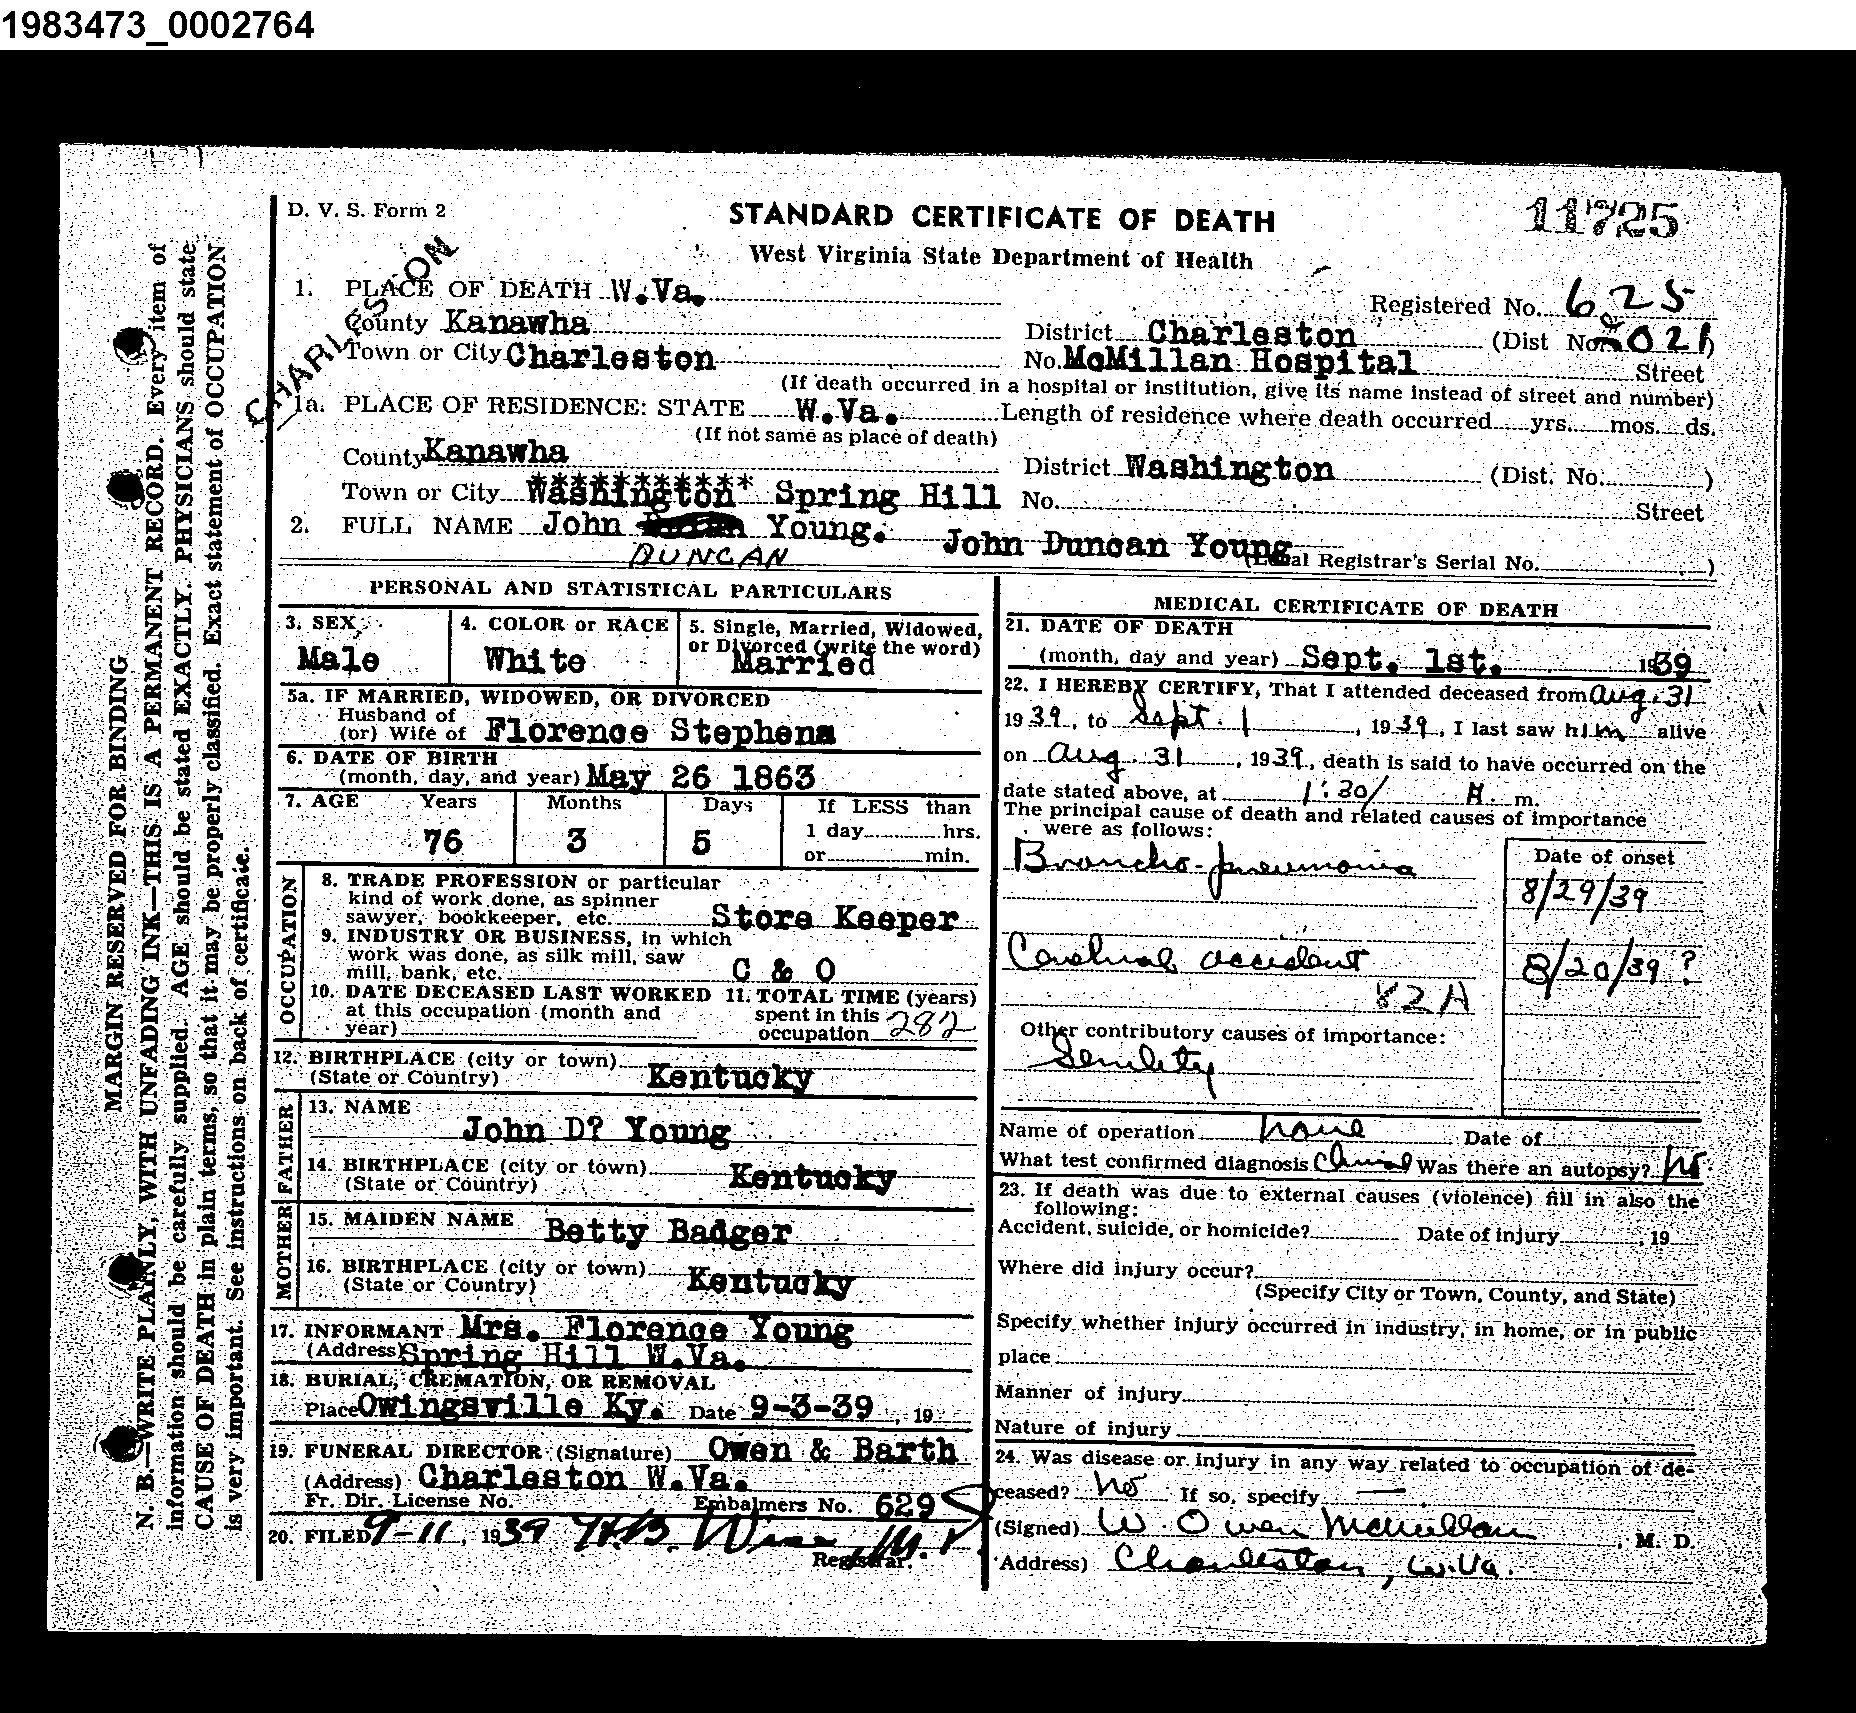 1983473_0002764
D. V. S. Form 2
STANDARD CERTIFICATE OF DEATH
11725
West Virginia State Department of Health
CHARLESTON
1. PLACE OF DEATH W.Va.
Registered No. 625
County Kanawha
District Charleston (Dist No. 2021)
Town or City Charleston
No. McMillan Hospital Street
(If death occurred in a hospital or institution, give its name instead of street and number)
1a. PLACE OF RESIDENCE: STATE W.Va. Length of residence where death occurred yrs. mos. ds.
(If not same as place of death)
County Kanawha
District Washington (Dist. No. )
Town or City Washington Spring Hill No. Street
2. FULL NAME John Young. John Duncan Young
DUNCAN
(Local Registrar's Serial No. )
PERSONAL AND STATISTICAL PARTICULARS
3. SEX
Male
4. COLOR or RACE
White
5. Single, Married, Widowed, or Divorced (write the word)
Married
5a. IF MARRIED, WIDOWED, OR DIVORCED
Husband of
(or) Wife of Florence Stephens
6. DATE OF BIRTH
(month, day, and year) May 26 1863
7. AGE Years Months Days If LESS than
76 3 5 1 day hrs.
or min.
OCCUPATION
8. TRADE PROFESSION or particular
kind of work done, as spinner
sawyer, bookkeeper, etc. Store Keeper
9. INDUSTRY OR BUSINESS, in which
work was done, as silk mill, saw
mill, bank, etc. C & O
10. DATE DECEASED LAST WORKED
at this occupation (month and
year)
11. TOTAL TIME (years)
spent in this
occupation 282
12. BIRTHPLACE (city or town)
(State or Country) Kentucky
FATHER
13. NAME
John D? Young
14. BIRTHPLACE (city or town)
(State or Country) Kentucky
MOTHER
15. MAIDEN NAME Betty Badger
16. BIRTHPLACE (city or town)
(State or Country) Kentucky
17. INFORMANT Mrs. Florence Young
(Address) Spring Hill W.Va.
18. BURIAL, CREMATION, OR REMOVAL
Place Owingsville Ky. Date 9-3-39, 19
19. FUNERAL DIRECTOR (Signature) Owen & Barth
(Address) Charleston W.Va.
Fr. Dir. License No. Embalmers No. 629
20. FILED 9-11, 1939 H.B. Wise M.D.
Registrar.
MEDICAL CERTIFICATE OF DEATH
21. DATE OF DEATH
(month, day and year) Sept. 1st. 1939
22. I HEREBY CERTIFY, That I attended deceased from Aug. 31
1939, to Sept. 1, 1939, I last saw him alive
on Aug. 31, 1939, death is said to have occurred on the
date stated above, at 1:30/ A. m.
The principal cause of death and related causes of importance
were as follows:
Date of onset
Broncho-pneumonia 8/29/39
Cerebral accident 8/20/39 ?
82A
Other contributory causes of importance:
Senility
Name of operation none Date of
What test confirmed diagnosis Clinical Was there an autopsy? No.
23. If death was due to external causes (violence) fill in also the
following:
Accident, suicide, or homicide? Date of injury, 19
Where did injury occur?
(Specify City or Town, County, and State)
Specify whether injury occurred in industry, in home, or in public
place
Manner of injury
Nature of injury
24. Was disease or injury in any way related to occupation of de-
ceased? No If so, specify —.
(Signed) W. Owen McMillan, M. D.
(Address) Charleston, W.Va.
MARGIN RESERVED FOR BINDING
N. B.—WRITE PLAINLY, WITH UNFADING INK—THIS IS A PERMANENT RECORD. Every item of
information should be carefully supplied. AGE should be stated EXACTLY. PHYSICIANS should state
CAUSE OF DEATH in plain terms, so that it may be properly classified. Exact statement of OCCUPATION
is very important. See instructions on back of certificate.